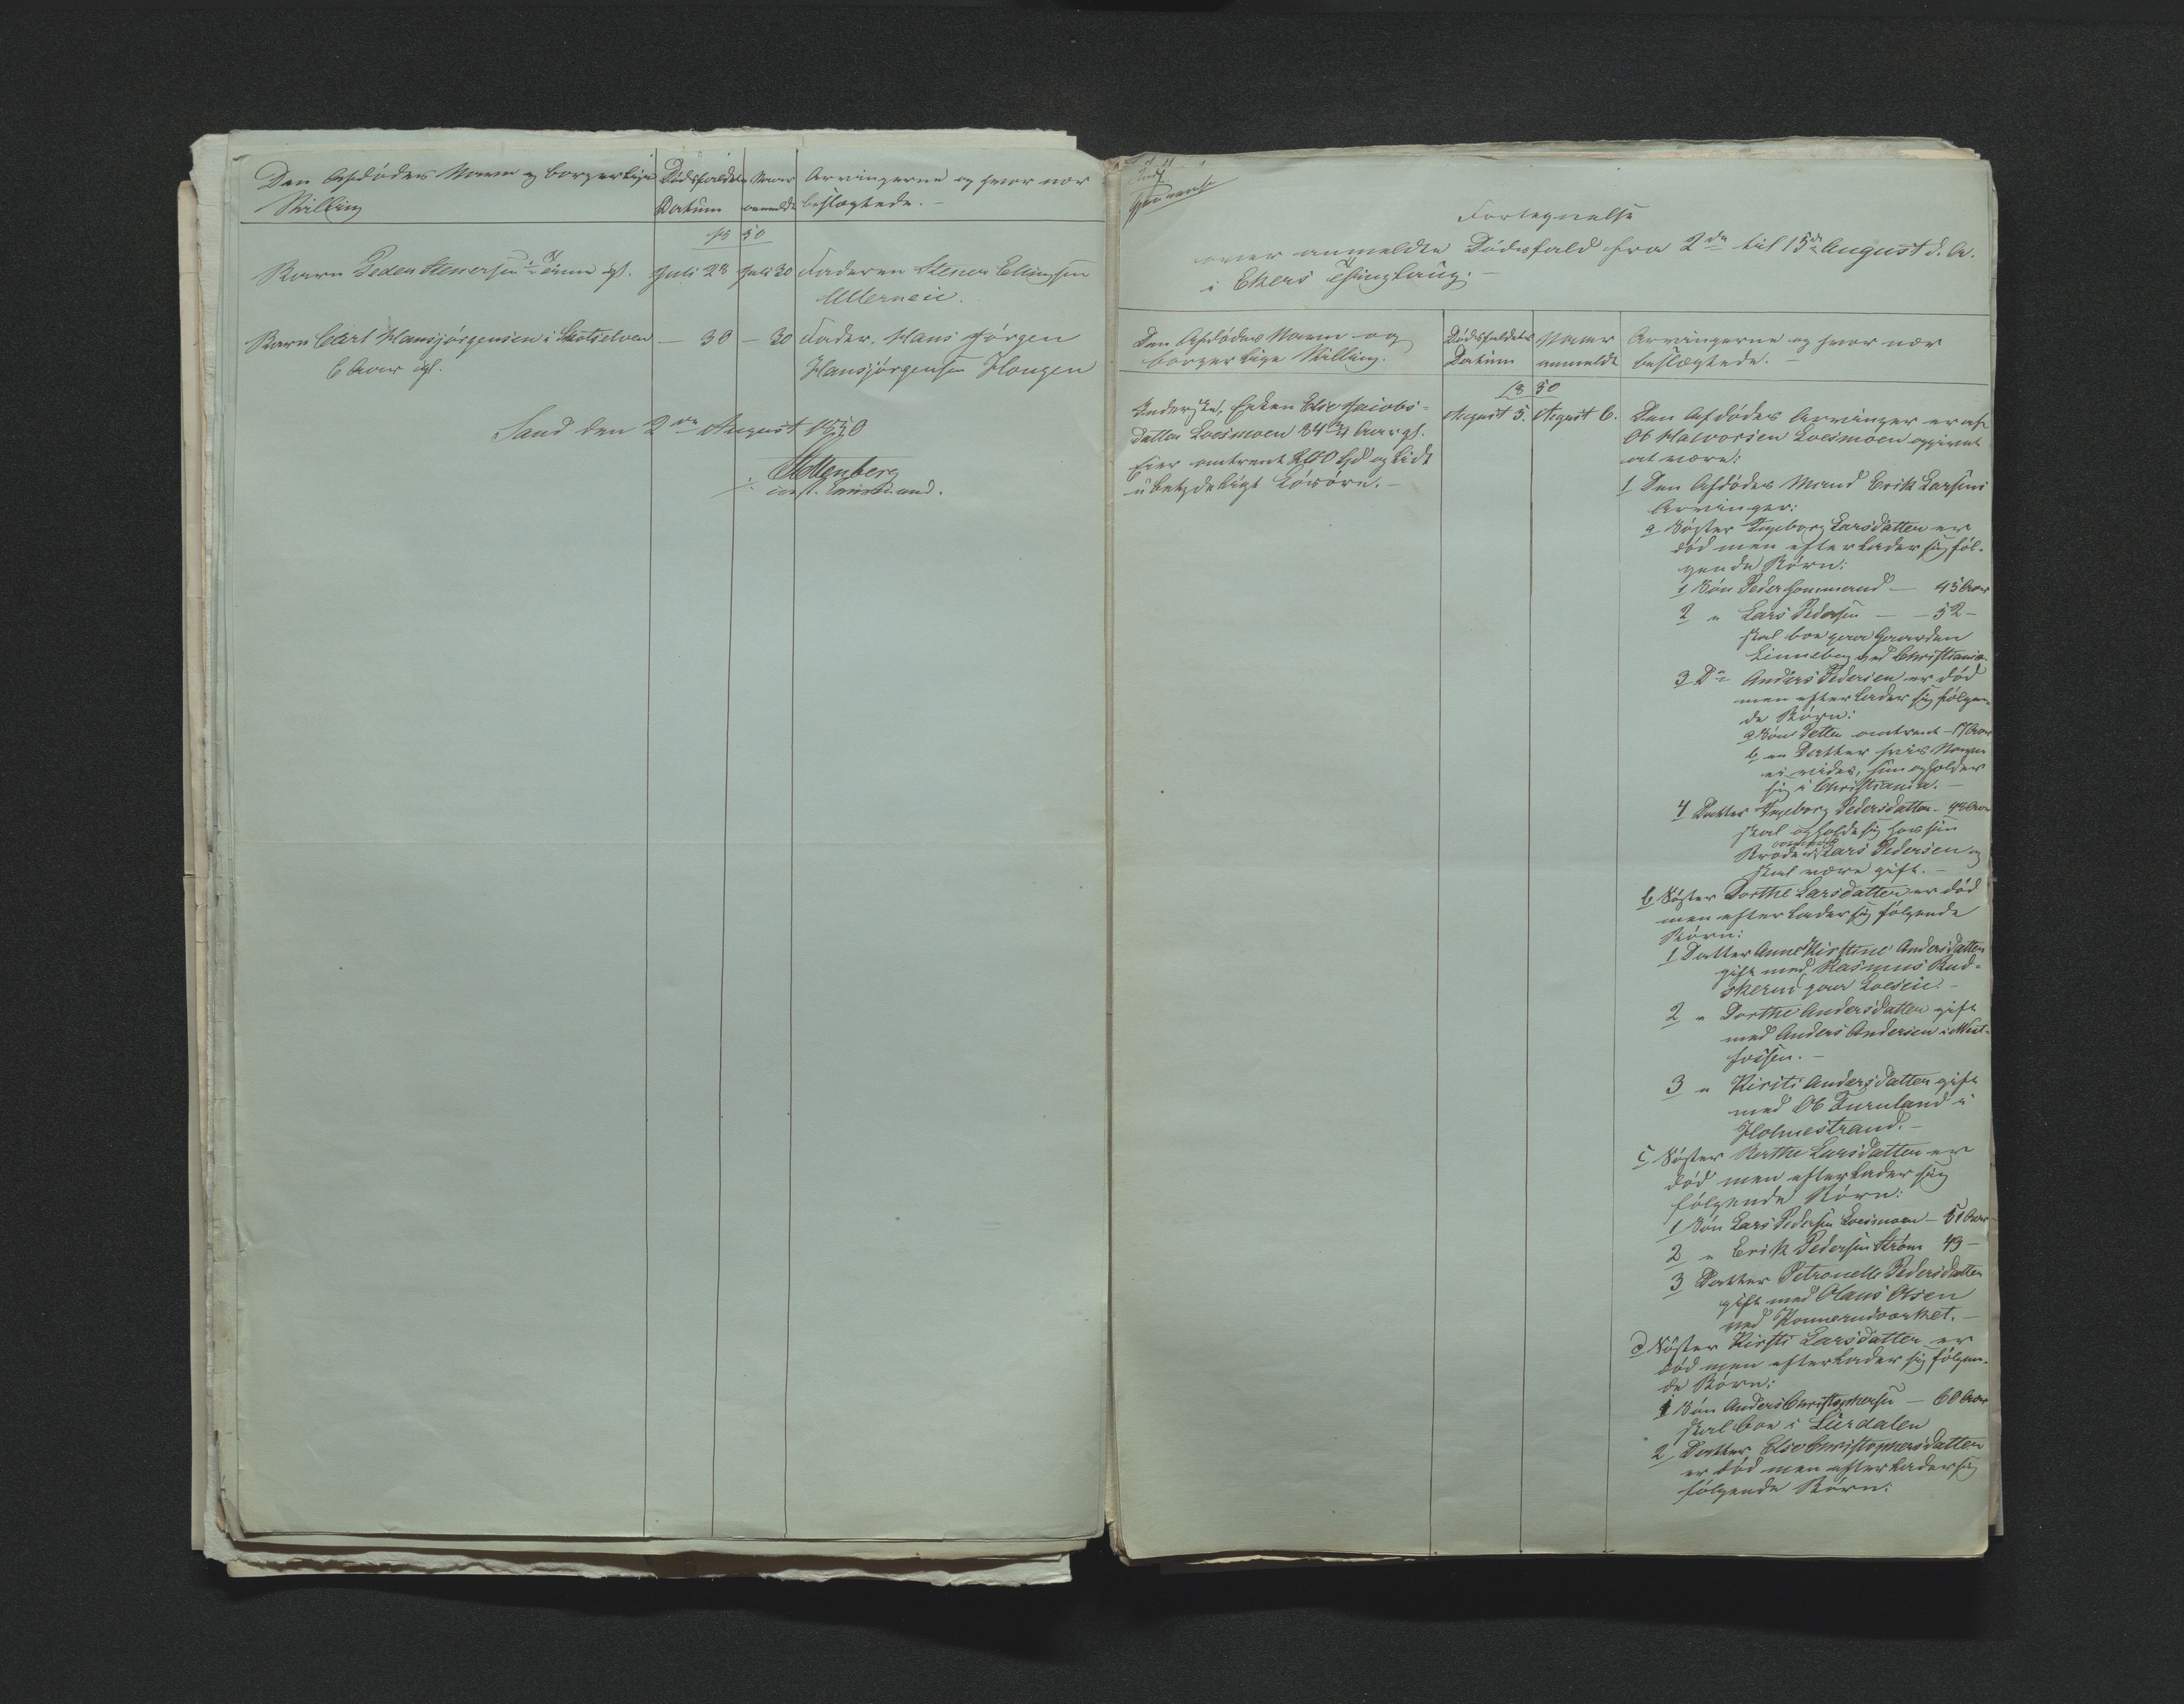 Den Afdødes Navn og borgerlige
Stilling
Dødsfaldets
Datum
Naar
anmeldt
Arvingerne og hvor nær
beslægtede. -
18 50
Barn Peder Stenersen
Juli 28 Juli 30 Faderen Stener Ellingsen
Ullerneie.
Barn Carl Hansjørgensen i Skotselven
6 Aar gl.
- 30 - 30 Fader, Hans Jørgen
Hansjørgensen Hougen
Sand den 2den August 1850
Stoltenberg
const. Lensmand.
Fortegnelse
over anmeldte Dødsfald fra 2den til 15de August d. A.
i Ekers Thinglaug. -
Den Afdødes Navn og
borgerlige Stilling.
Dødsfaldets
Datum
Naar
anmeldt
Arvingerne og hvor nær
beslægtede. -
18 50
Enken Else Jacobs-
datter Loesmoen 84 Aar gl.
Eier omtrent 200 Spd og lidt
ubetydeligt Løsøre. -
August 5. August 6.
Den Afdødes Arvinger er af
Ole Halvorsen Loesmoen opgivet
at være:
1 Den Afdødes Mand Erik Larsens
Arvinger:
a Søster Ingeborg Larsdatter er
død men efterlader sig føl-
gende Børn:
1 Søn Peder Gommerud - 45 Aar
2 " Lars Pedersen - - 52 -
skal boe paa Gaarden
Linneberg ved Christiania.
3 Do Anders Pedersen er død
men efterlader sig følgen-
de Børn:
a Søn Petter omtrent - 17 Aar
b en Datter hvis Navn
ei vides, hun opholder
sig i Christiania. -
4 Datter Ingeborg Pedersdatter - 48 Aar
skal opholde sig hos sin
Broder Lars Pedersen og
skal være gift. -
b Søster Dorthe Larsdatter er død
men efterlader sig følgende
Børn:
1 Datter Anne Kirstine Andersdatter
gift med Rasmus Rud-
skerud paa Loeseie. -
2 " Dorthe Andersdatter gift
med Anders Andersen i Vest-
fossen. -
3 " Kirsti Andersdatter gift
med Ole Turuland i
Holmestrand. -
c Søster Berthe Larsdatter er
død men efterlader sig
følgende Børn:
1 Søn Lars Pedersen Loesmoen - 51 Aar
2 " Erik Pedersen Strøm 49 -
3 Datter Petronelle Pedersdatter
gift med Olaus Olsen
ved Konnerudværket. -
d Søster Kirsti Larsdatter er
død men efterlader sig følgen-
de Børn:
1 Søn Anders Christophersen - 60 Aar
skal boe i Lierdalen
2 Datter Else Christophersdatter
er død men efterlader sig
følgende Børn: